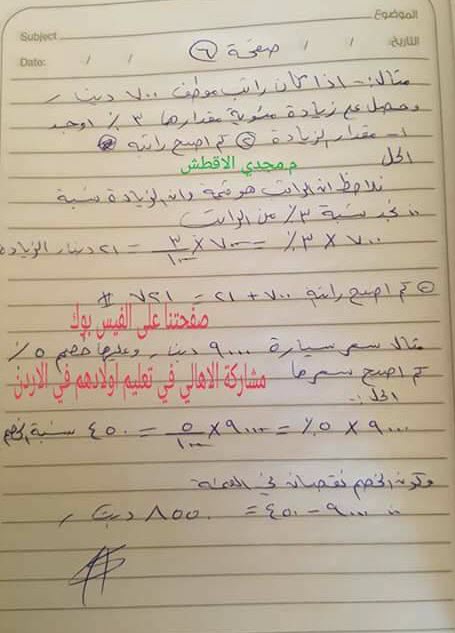 الموضوع
Subject
التاريخ: / /
Date: / /
صفحة ٦
مثال:- اذا كان راتب موظف ٧٠٠ دينار
وحصل على زيادة مئوية مقدارها ٣٪ اوجد
١- مقدار الزيادة ٢ كم اصبح راتبه
الحل
م.مجدي الاقطش
نلاحظ ان الراتب هو قيمة وان الزيادة نسبة
∴ نجد نسبة ٣٪ من الراتب
٧٠٠ × ٣٪ = ٧٠٠ × ٣/١٠٠ = ٢١ دينار الزيادة
٢ كم اصبح راتبه ٧٠٠ + ٢١ = ٧٢١ #
صفحتنا على الفيس بوك
مثال سعر سيارة ٩٠٠٠ دينار وعليها خصم ٥٪
كم اصبح سعرها
مشاركة الاهالي في تعليم اولادهم في الاردن
الحل:-
٩٠٠٠ × ٥٪ = ٩٠٠٠ × ٥/١٠٠ = ٤٥٠ نسبة الخصم
وكون الخصم نقصان في القيمة
∴ ٩٠٠٠ - ٤٥٠ = ٨٥٥٠ دينار
#